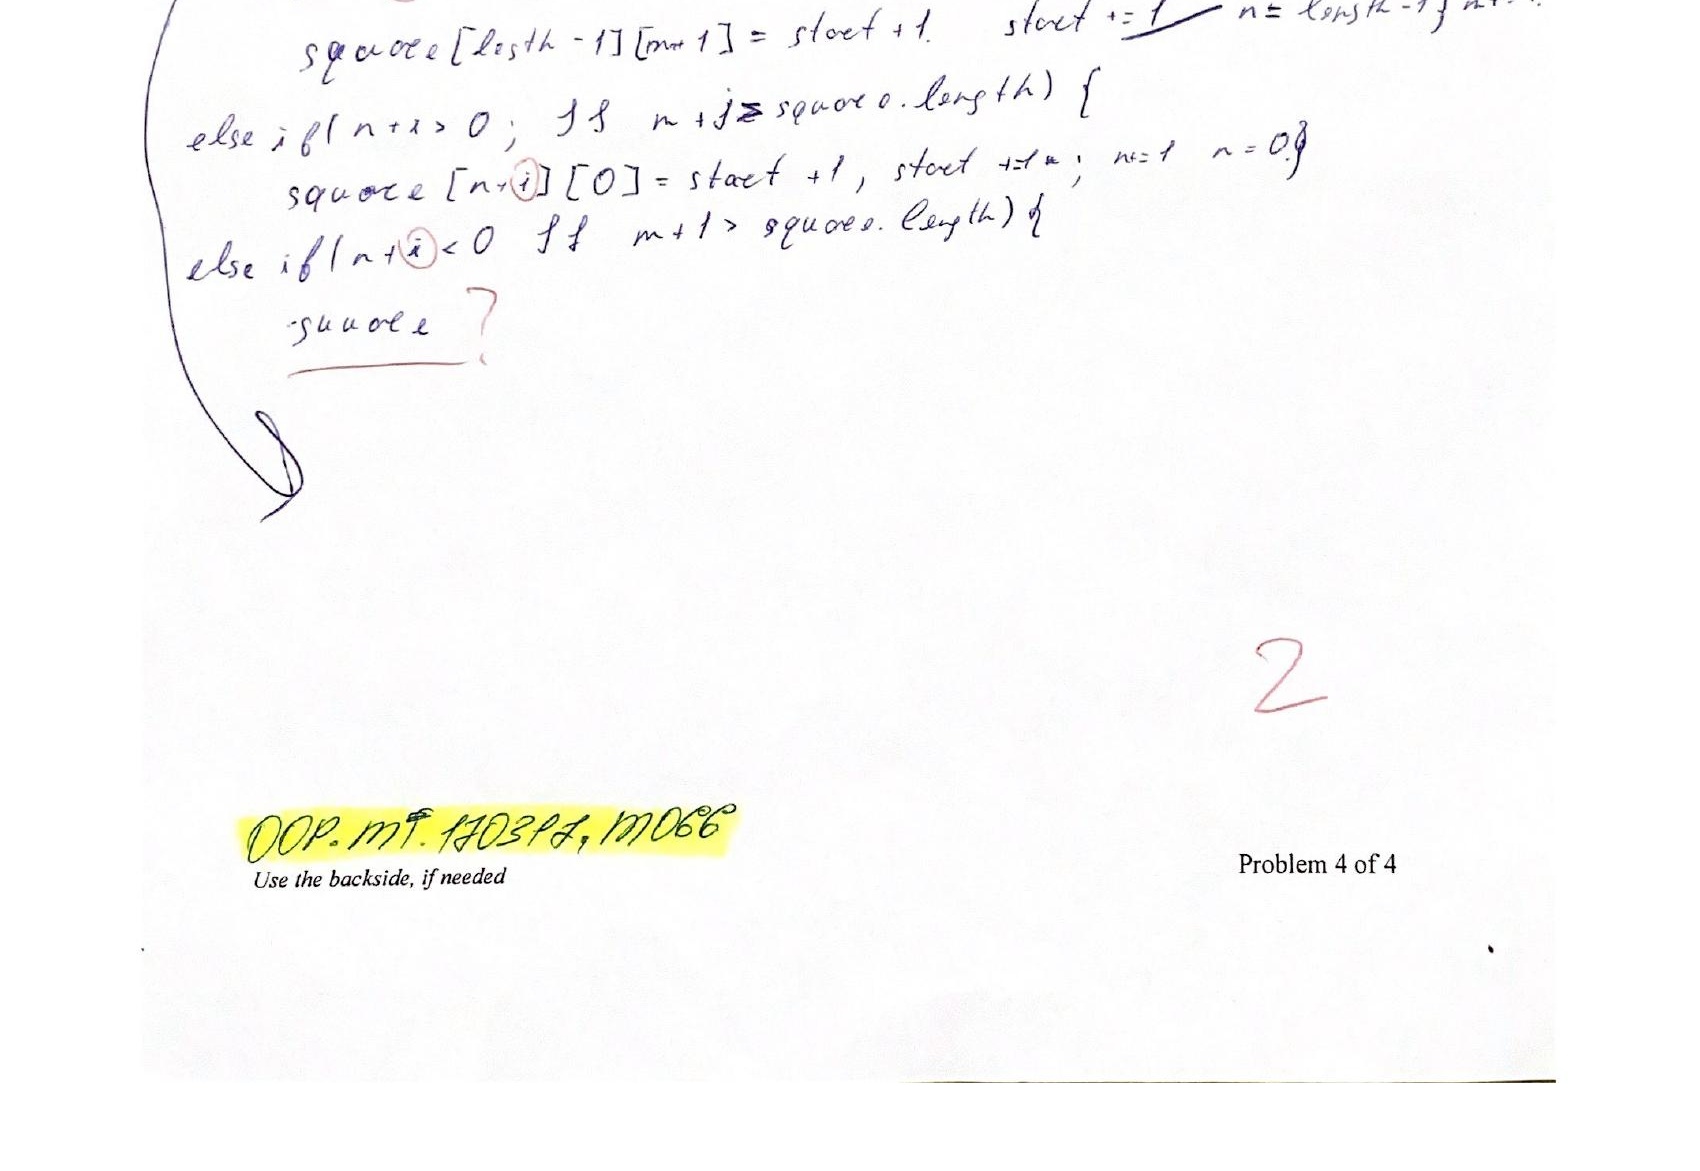 square[length -1][m+1] = start +1. start += 1 n = length -1}
else if( n+i > 0; && m+j ≥ square.length) {
square [n+i][0] = start +1, start +=1; n+=1 n = 0;}
else if( n+i < 0 && m+1 > square.length) {
square ?
2
OOP.MT. 170317, M066
Use the backside, if needed
Problem 4 of 4